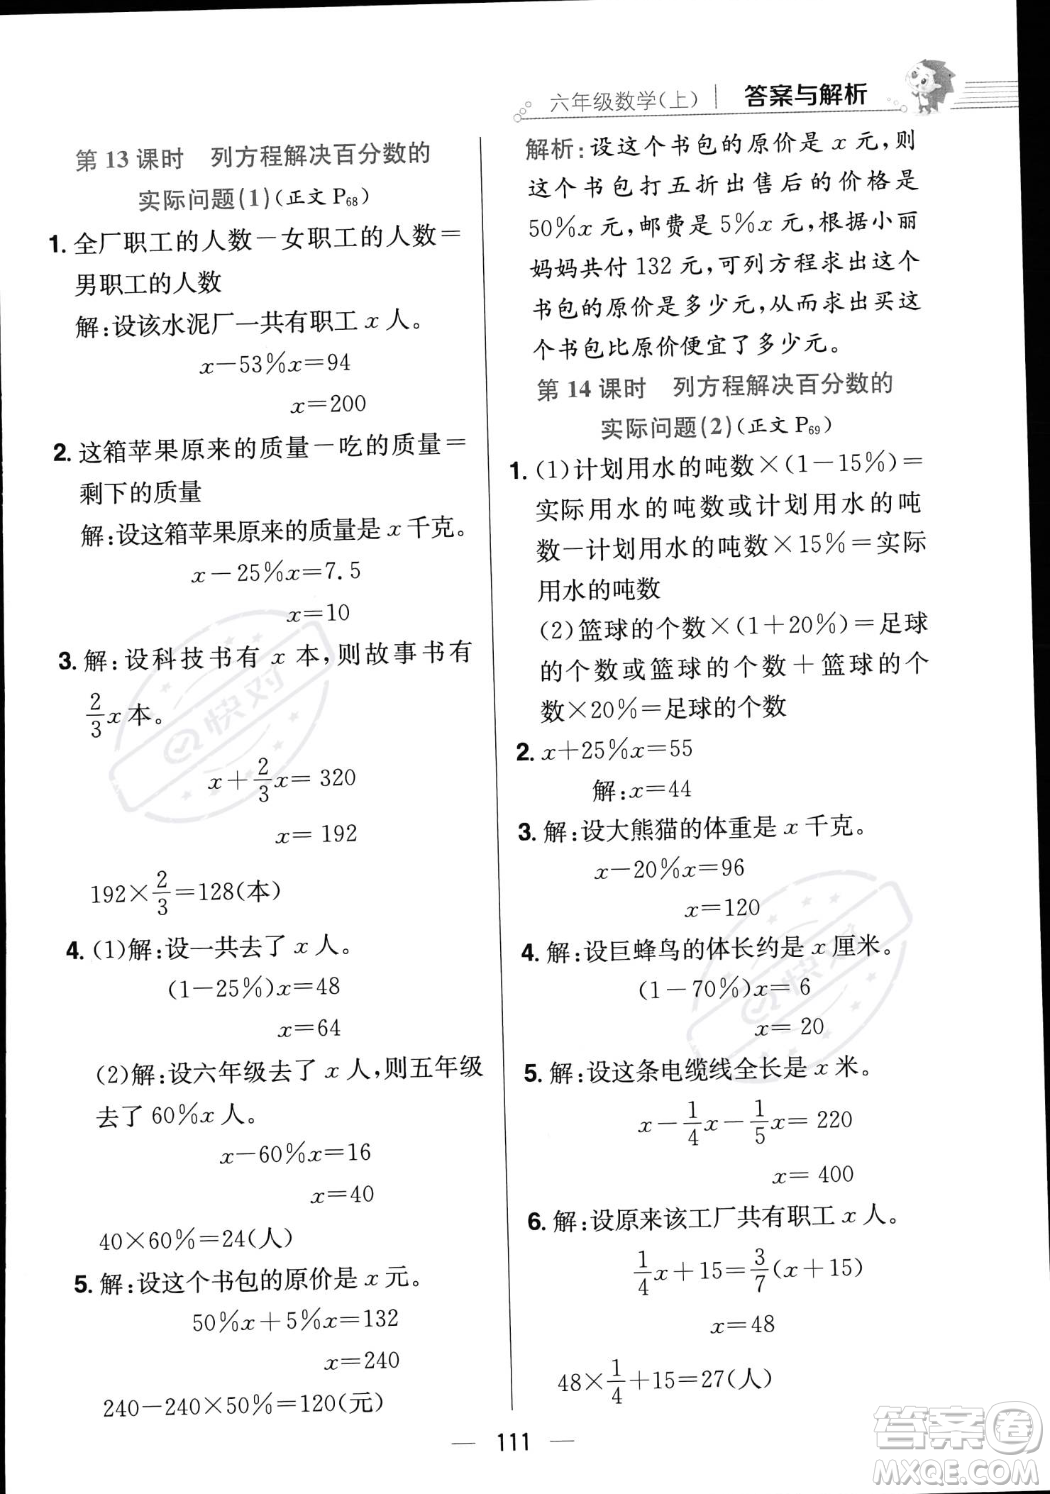 六年级数学(上) | 答案与解析
第13课时 列方程解决百分数的
实际问题(1)(正文 P₆₈)
1. 全厂职工的人数－女职工的人数＝
男职工的人数
解:设该水泥厂一共有职工 x 人。
x－53%x＝94
x＝200
2. 这箱苹果原来的质量－吃的质量＝
剩下的质量
解:设这箱苹果原来的质量是 x 千克。
x－25%x＝7.5
x＝10
3. 解:设科技书有 x 本,则故事书有
2/3 x 本。
x＋2/3 x＝320
x＝192
192×2/3＝128(本)
4. (1)解:设一共去了 x 人。
(1－25%)x＝48
x＝64
(2)解:设六年级去了 x 人,则五年级
去了 60%x 人。
x－60%x＝16
x＝40
40×60%＝24(人)
5. 解:设这个书包的原价是 x 元。
50%x＋5%x＝132
x＝240
240－240×50%＝120(元)
解析:设这个书包的原价是 x 元,则
这个书包打五折出售后的价格是
50%x 元,邮费是 5%x 元,根据小丽
妈妈共付 132 元,可列方程求出这个
书包的原价是多少元,从而求出买这
个书包比原价便宜了多少元。
第14课时 列方程解决百分数的
实际问题(2)(正文 P₆₉)
1. (1)计划用水的吨数×(1－15%)＝
实际用水的吨数或计划用水的吨
数－计划用水的吨数×15%＝实际
用水的吨数
(2)篮球的个数×(1＋20%)＝足球
的个数或篮球的个数＋篮球的个
数×20%＝足球的个数
2. x＋25%x＝55
解:x＝44
3. 解:设大熊猫的体重是 x 千克。
x－20%x＝96
x＝120
4. 解:设巨蜂鸟的体长约是 x 厘米。
(1－70%)x＝6
x＝20
5. 解:设这条电缆线全长是 x 米。
x－1/4 x－1/5 x＝220
x＝400
6. 解:设原来该工厂共有职工 x 人。
1/4 x＋15＝3/7(x＋15)
x＝48
48×1/4＋15＝27(人)
— 111 —
快对
快对
答案卷
MXQE.COM